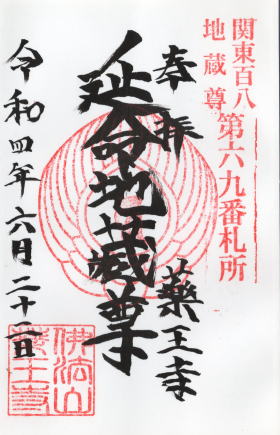 関東百八
地蔵尊
第六九番札所
奉拝
延命地蔵尊
薬王寺
令和四年六月二十二日
佛法山
薬王寺